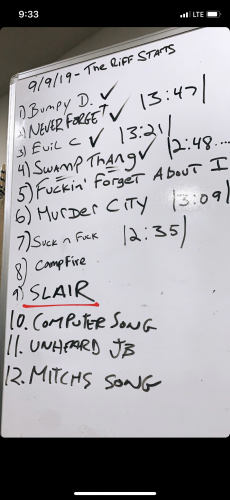 9:33
LTE
9/9/19 - The Riff Starts
1) Bumpy D. ✓
2) NEVER FORGET ✓ |3:47|
3) Evil C ✓ |3:21|
4) Swamp Thang ✓ |2:48....
5) Fuckin' Forget About I
6) Murder City |3:09|
7) Suck n Fuck |2:35|
8) Campfire
9) SLAIR
10. COMPUTER SONG
11. UNHEARD JB
12. MITCHS SONG